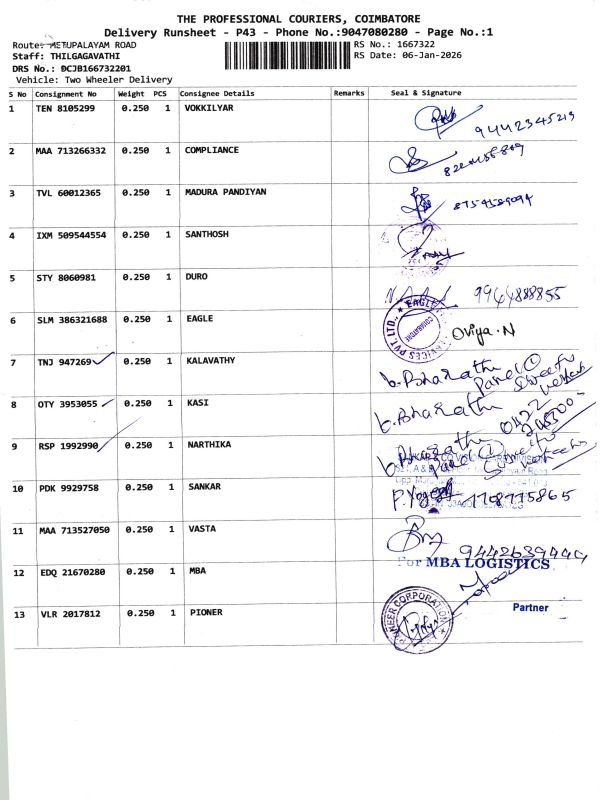 THE PROFESSIONAL COURIERS, COIMBATORE
Delivery Runsheet - P43 - Phone No.:9047080280 - Page No.:1
Route: METUPALAYAM ROAD
RS No.: 1667322
Staff: THILGAGAVATHI
RS Date: 06-Jan-2026
DRS No.: DCJB166732201
Vehicle: Two Wheeler Delivery
S No Consignment No Weight PCS Consignee Details Remarks Seal & Signature
1 TEN 8105299 0.250 1 VOKKILYAR 9442345219
2 MAA 713266332 0.250 1 COMPLIANCE
3 TVL 60012365 0.250 1 MADURA PANDIYAN
4 IXM 509544554 0.250 1 SANTHOSH
5 STY 8060981 0.250 1 DURO 9944888855
6 SLM 386321688 0.250 1 EAGLE EAGLE COIMBATORE PVT LTD. Oviya.N
7 TNJ 947269 0.250 1 KALAVATHY b. Bharathi
8 OTY 3953055 0.250 1 KASI b. Bharathi 0422
9 RSP 1992990 0.250 1 NARTHIKA b. Bharathi
10 PDK 9929758 0.250 1 SANKAR
11 MAA 713527050 0.250 1 VASTA
12 EDQ 21670280 0.250 1 MBA For MBA LOGISTICS
Partner
13 VLR 2017812 0.250 1 PIONER CORPORATION